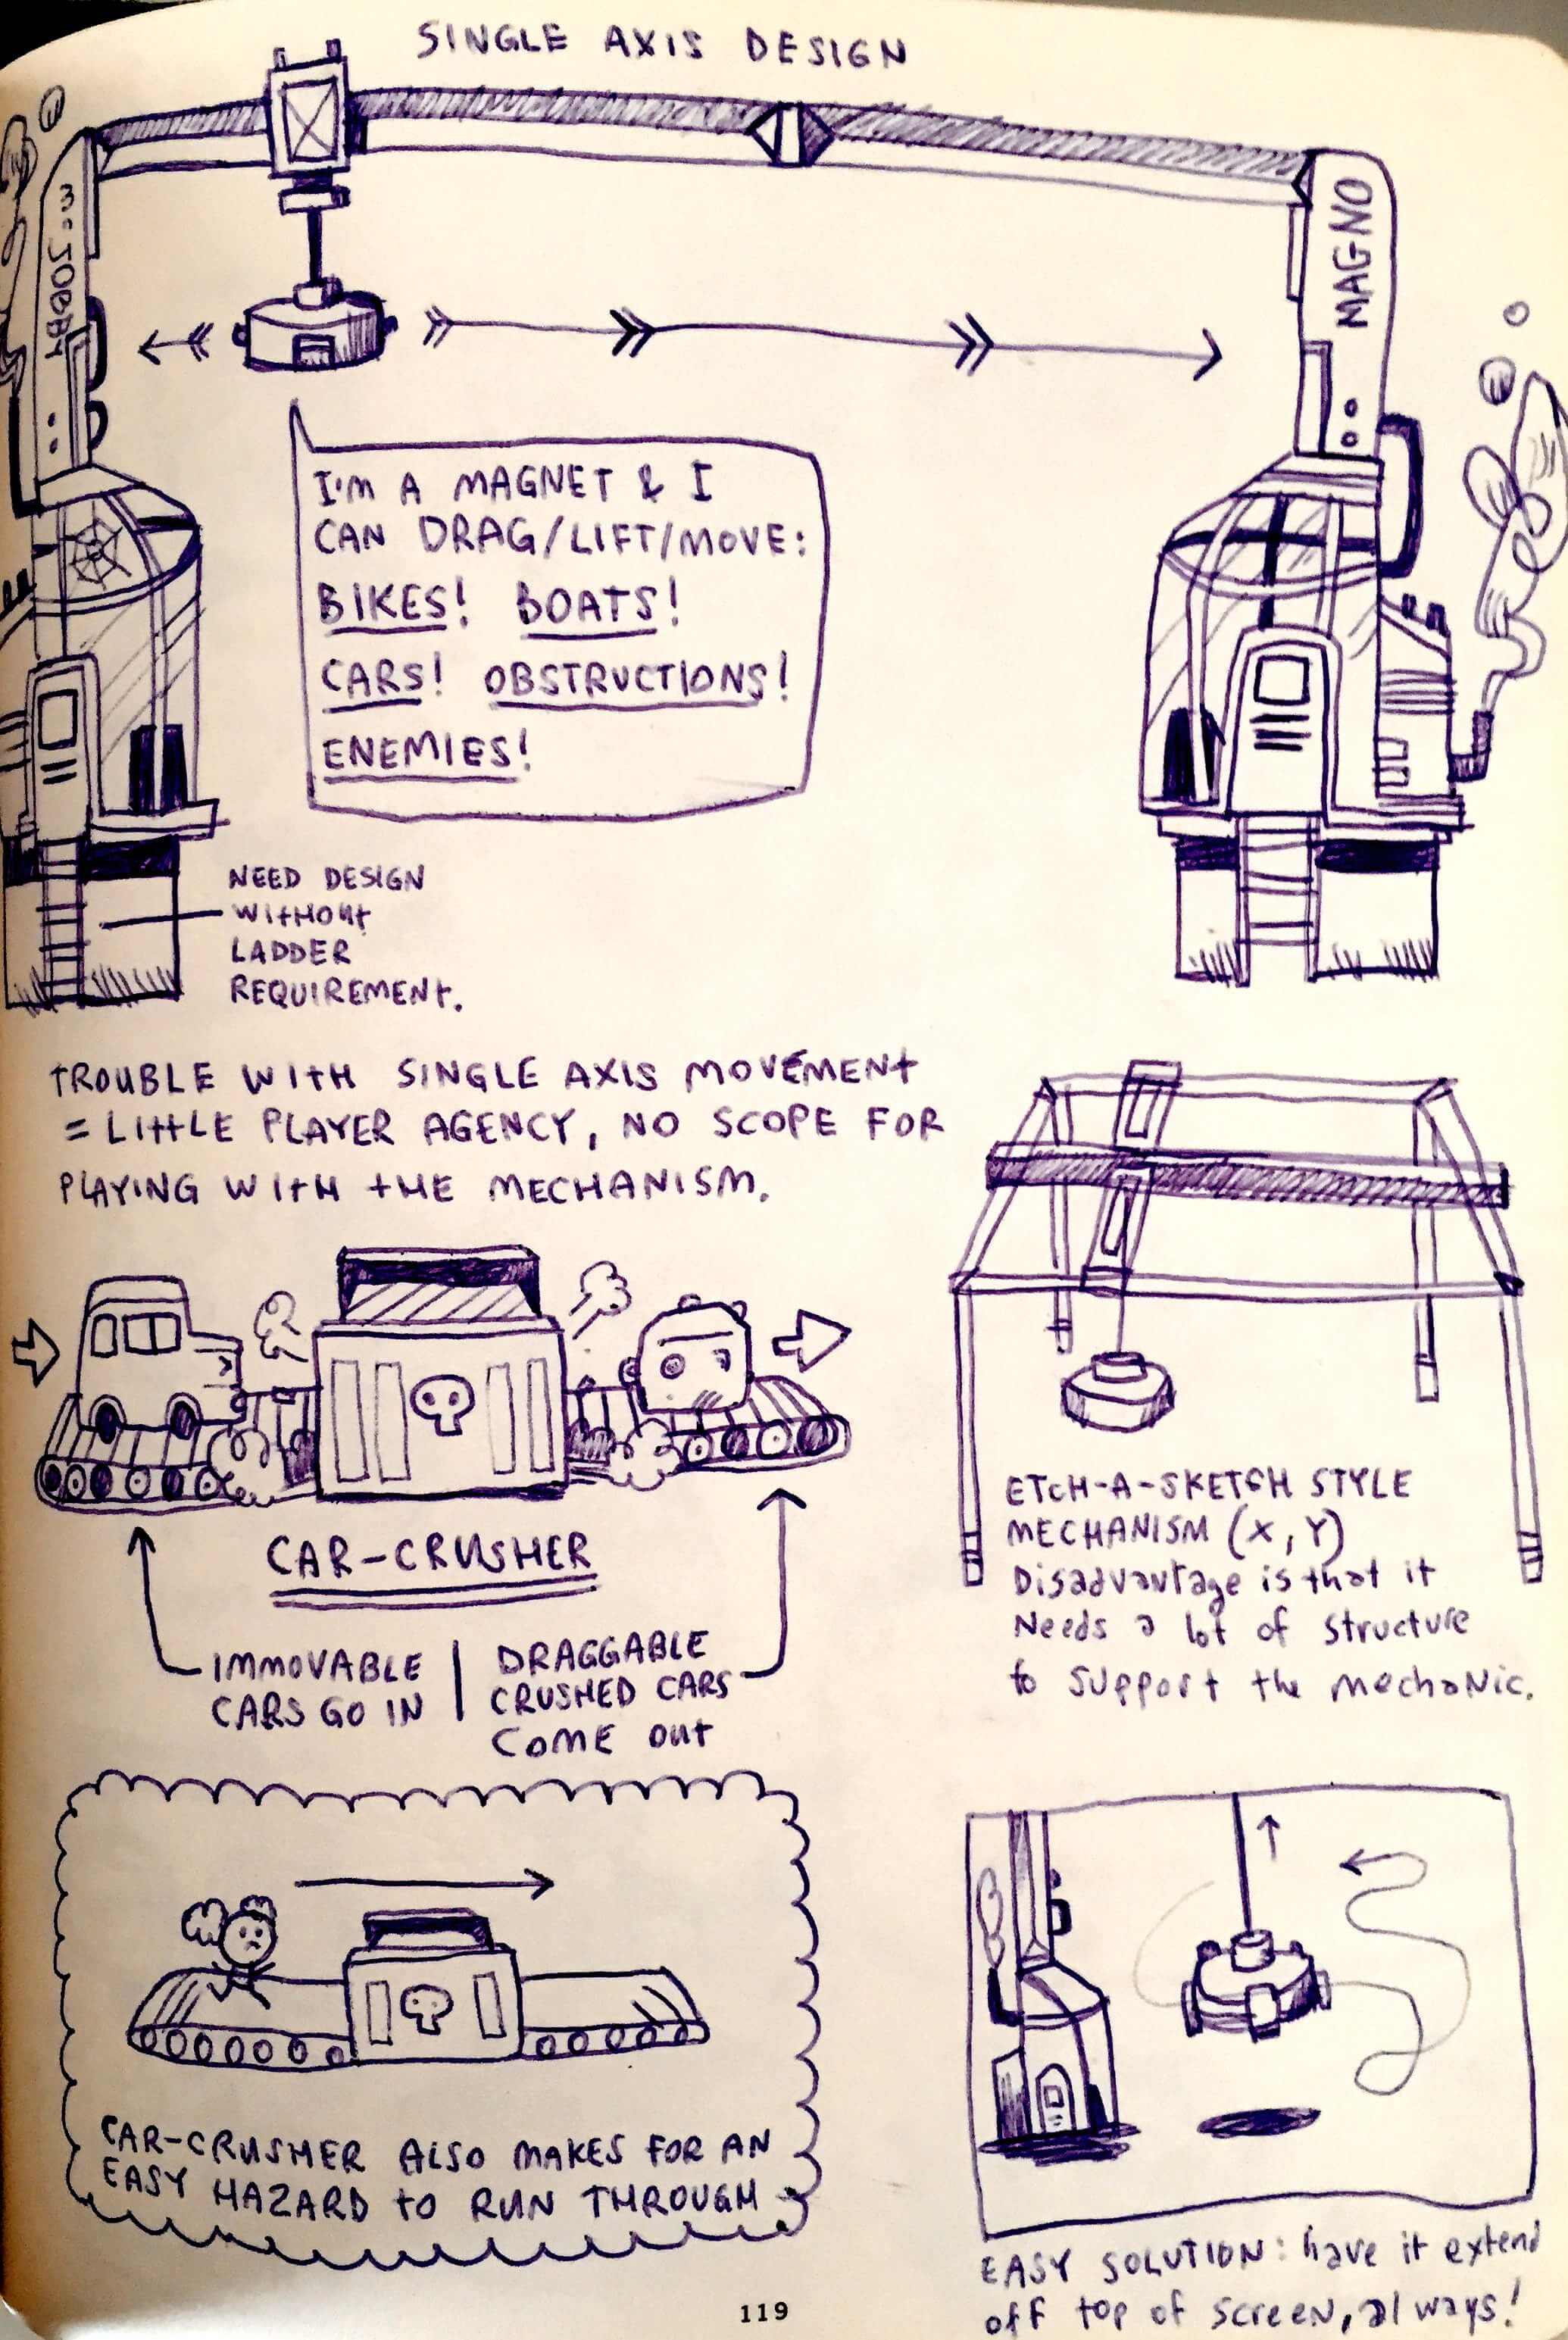 SINGLE AXIS DESIGN
Mc JOBBY
MAGNO
I'M A MAGNET & I
CAN DRAG/LIFT/MOVE:
BIKES! BOATS!
CARS! OBSTRUCTIONS!
ENEMIES!
NEED DESIGN
WITHOUT
LADDER
REQUIREMENT.
TROUBLE WITH SINGLE AXIS MOVEMENT
= LITTLE PLAYER AGENCY, NO SCOPE FOR
PLAYING WITH THE MECHANISM.
CAR-CRUSHER
IMMOVABLE
CARS GO IN
DRAGGABLE
CRUSHED CARS
COME OUT
ETCH-A-SKETCH STYLE
MECHANISM (X, Y)
Disadvantage is that it
Needs a lot of structure
to support the mechanic.
CAR-CRUSHER ALSO MAKES FOR AN
EASY HAZARD TO RUN THROUGH
EASY SOLUTION: have it extend
off top of screen, always!
119